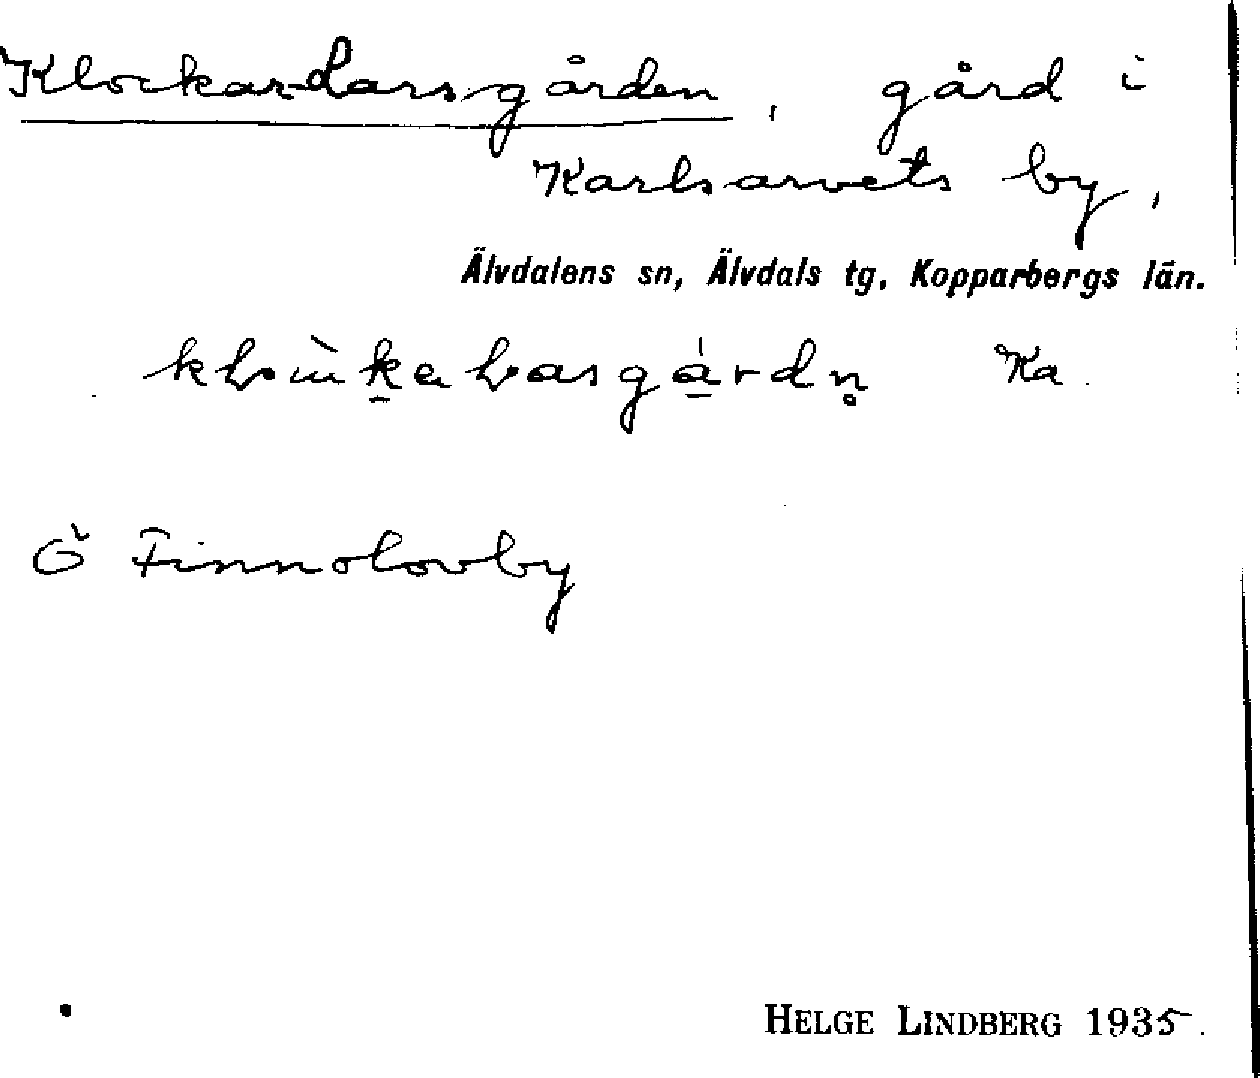 Klockar-Larsgården, gård i
Karlsarvets by,
Älvdalens sn, Älvdals tg, Kopparbergs län.
Ka.
Ö Finnolovby
HELGE LINDBERG 1935.